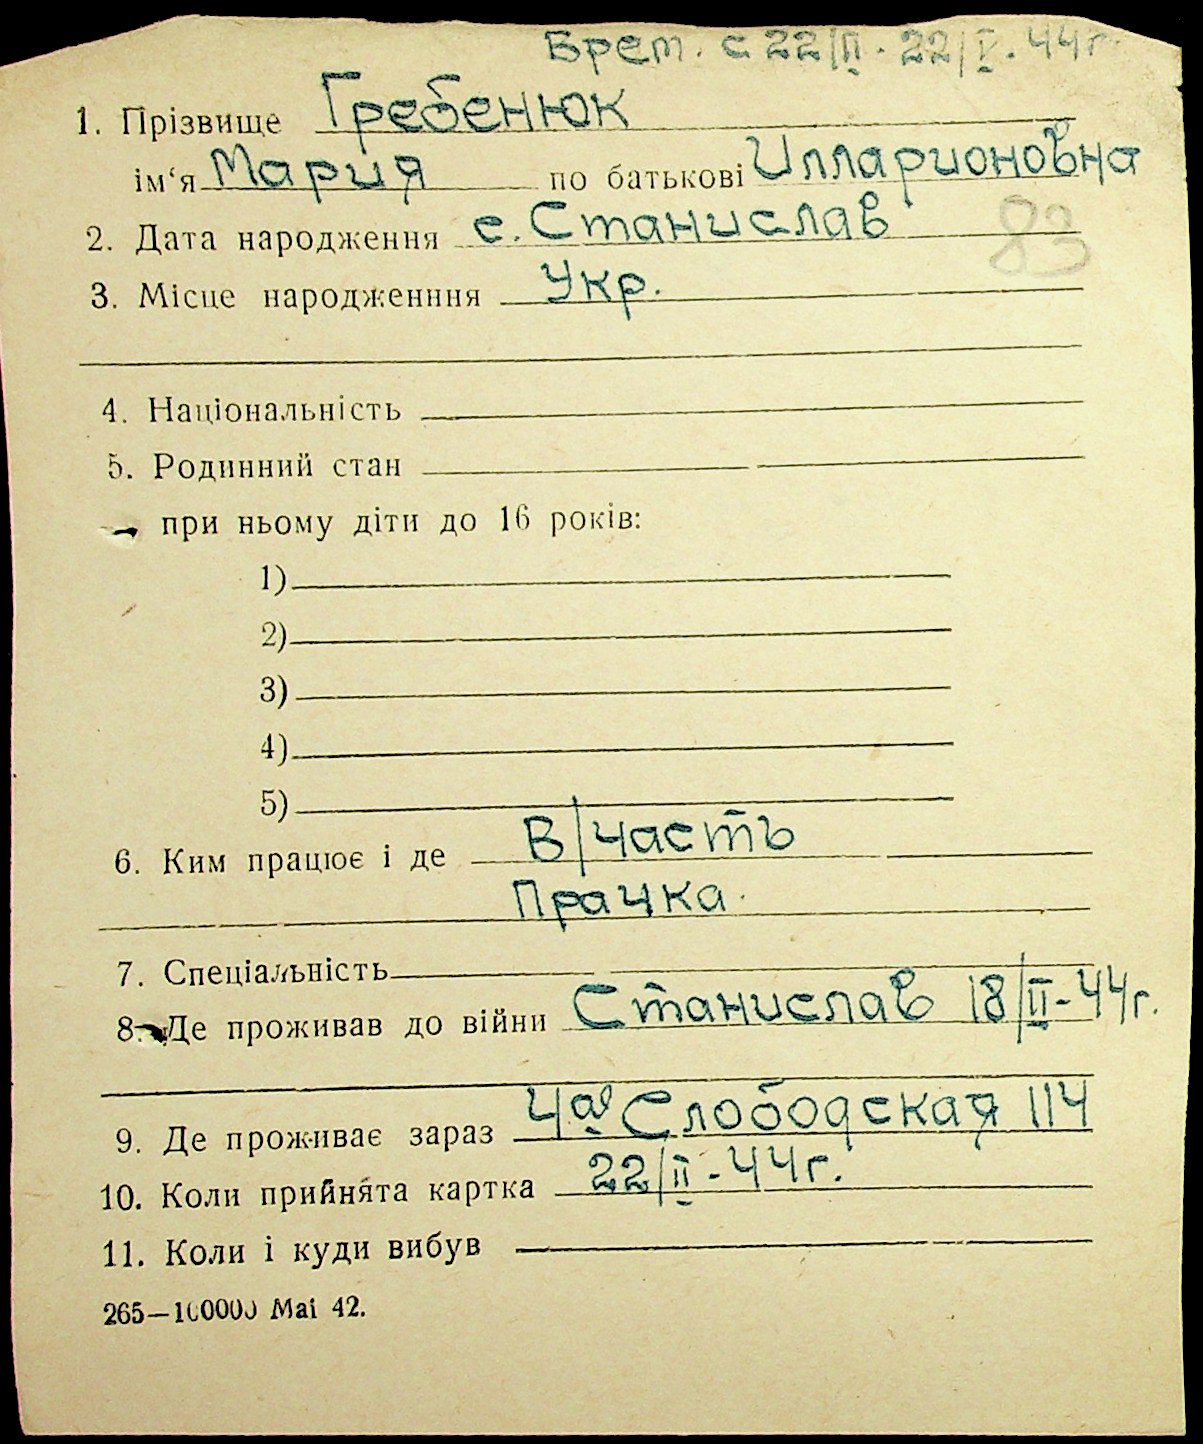 Врем. с 22/II - 22/V. 44г.
1. Прізвище Гребенюк
ім‘я Мария по батькові Илларионовна
2. Дата народження с. Станислав 83
3. Місце народженння Укр.
4. Національність
5. Родинний стан
при ньому діти до 16 років:
1)
2)
3)
4)
5)
6. Ким працює і де В/часть
Прачка.
7. Спеціальність
8. Де проживав до війни Станислав 18/II-44г.
9. Де проживає зараз 4ая Слободская 114
10. Коли прийнята картка 22/II-44г.
11. Коли і куди вибув
265—100000 Mai 42.